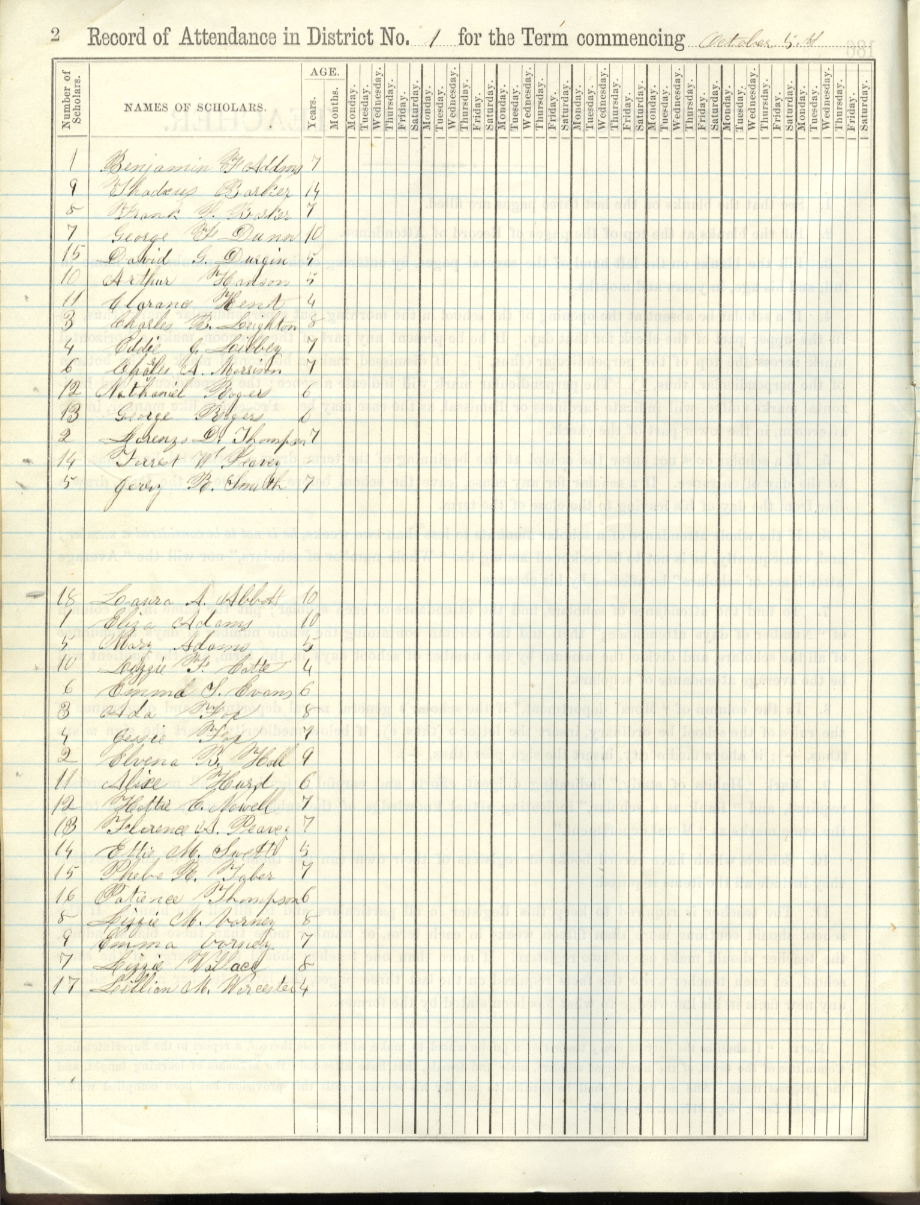 2 Record of Attendance in District No. 1 for the Term commencing October 5th 186
Number of Scholars. NAMES OF SCHOLARS. AGE. Years. Months. Monday. Tuesday. Wednesday. Thursday. Friday. Saturday. Monday. Tuesday. Wednesday. Thursday. Friday. Saturday. Monday. Tuesday. Wednesday. Thursday. Friday. Saturday. Monday. Tuesday. Wednesday. Thursday. Friday. Saturday. Monday. Tuesday. Wednesday. Thursday. Friday. Saturday. Monday. Tuesday. Wednesday. Thursday. Friday. Saturday. Monday. Tuesday. Wednesday. Thursday. Friday. Saturday.
1 Benjamin F Addms 7
9 Thadeus Barker 14
8 Frank Barker 7
7 George F Dunn 10
15 David G. Durgin 5
10 Arthur Hanson 5
11 Hend 4
3 Charles B. Leighton 8
4 Eddie J. Libbey 7
6 Charles A. Morrison 7
12 Nathaniel Rogers 6
13 George Rogers 6
2 Lorenzo D. Thompson 7
14 Forrest W Peavey
5 Jerry B. Smith 7
18 Laura A. Abbott 10
1 Eliza Adams 10
5 Mary Adams 5
10 Lizzie F. Cotte 4
6 Emma S. Evans 6
3 Ada Fox 8
4 Jessie Fox 7
2 Elvena B. Hall 9
11 Alice Hurd 6
12 Hattie C. Nowell 7
13 Florence A. Peavey 7
14 Ettie M. Swett 5
15 Phebe R. Taber 7
16 Patience Thompson 6
8 Lizzie M. Varney 8
9 Emma Varney 7
7 Lizzie Wallace 8
17 Lillian M. Worcester 4